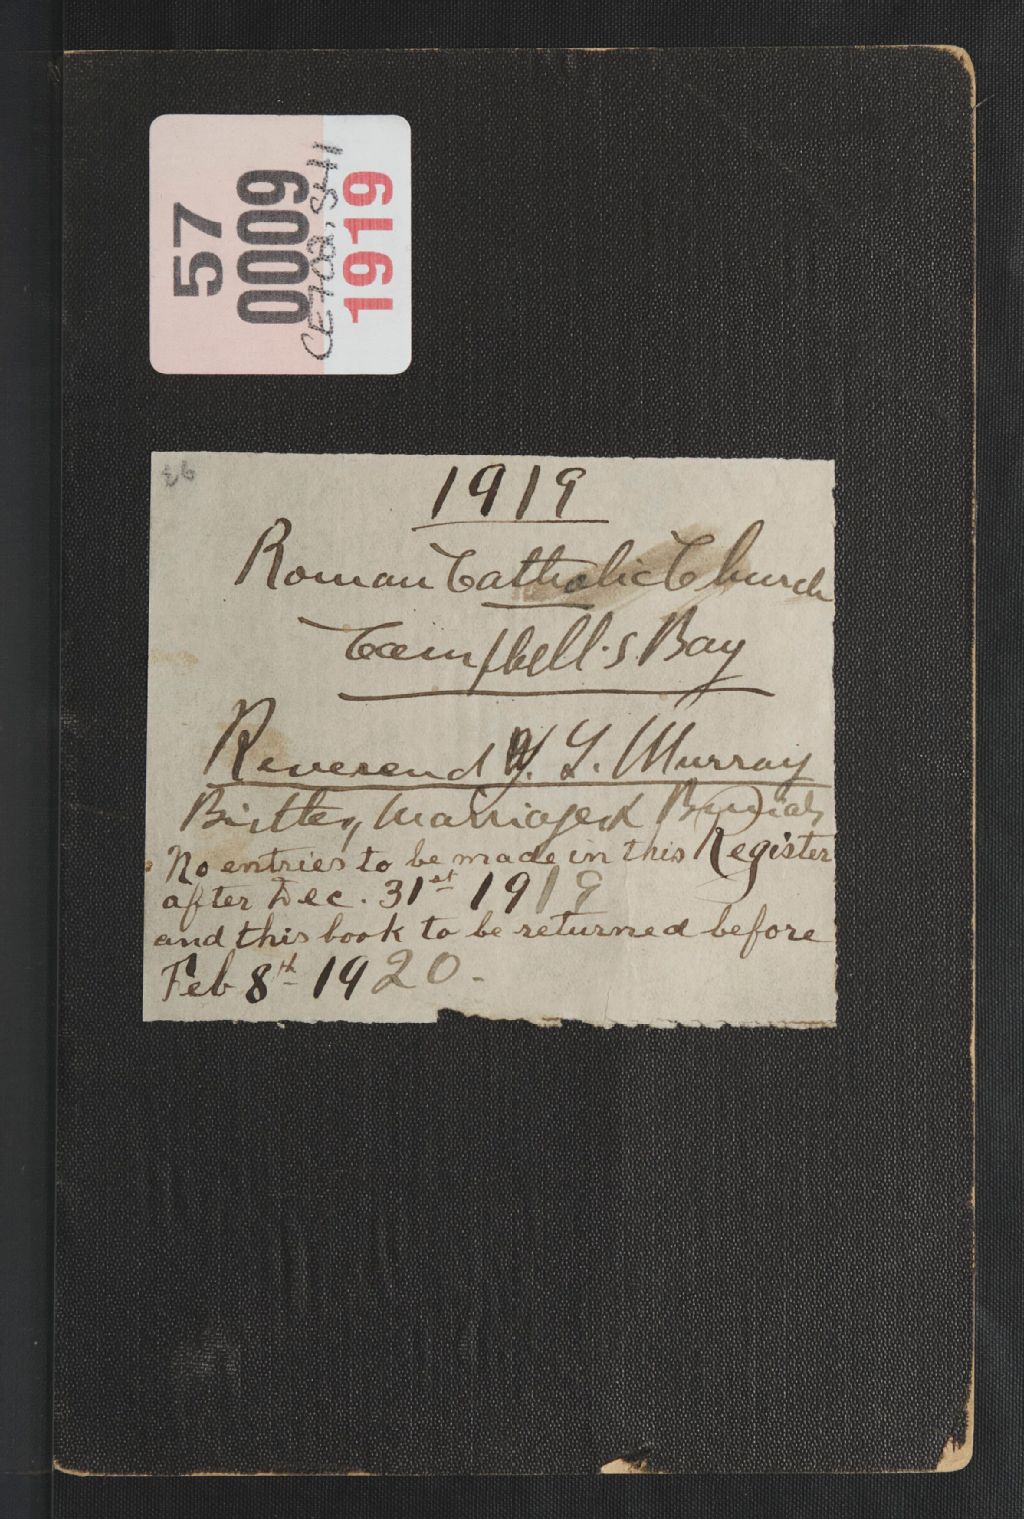 57
0009
CE702, S41
1919
36
1919
Roman Catholic Church
Campbell's Bay
Reverend L. Murray
Births, Marriages & Burials
No entries to be made in this Register
after Dec. 31st 1919
and this book to be returned before
Feb 8th 1920.